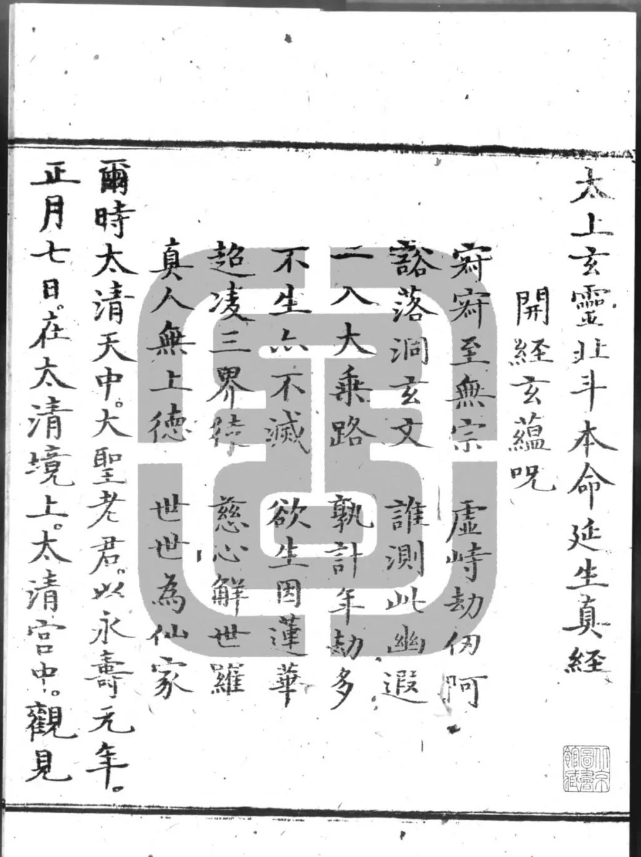 太上玄靈北斗本命延生真経
開経玄蘊呪
寂寂至無宗　虛峙劫仞阿
豁落洞玄文　誰測此幽遐
一入大乘路　孰計年劫多
不生亦不滅　欲生因蓮華
超凌三界途　慈心解世羅
真人無上德　世世為仙家
爾時太清天中。大聖老君。以永壽元年。
正月七日。在太清境上。太清宮中。觀見
北京圖書館藏